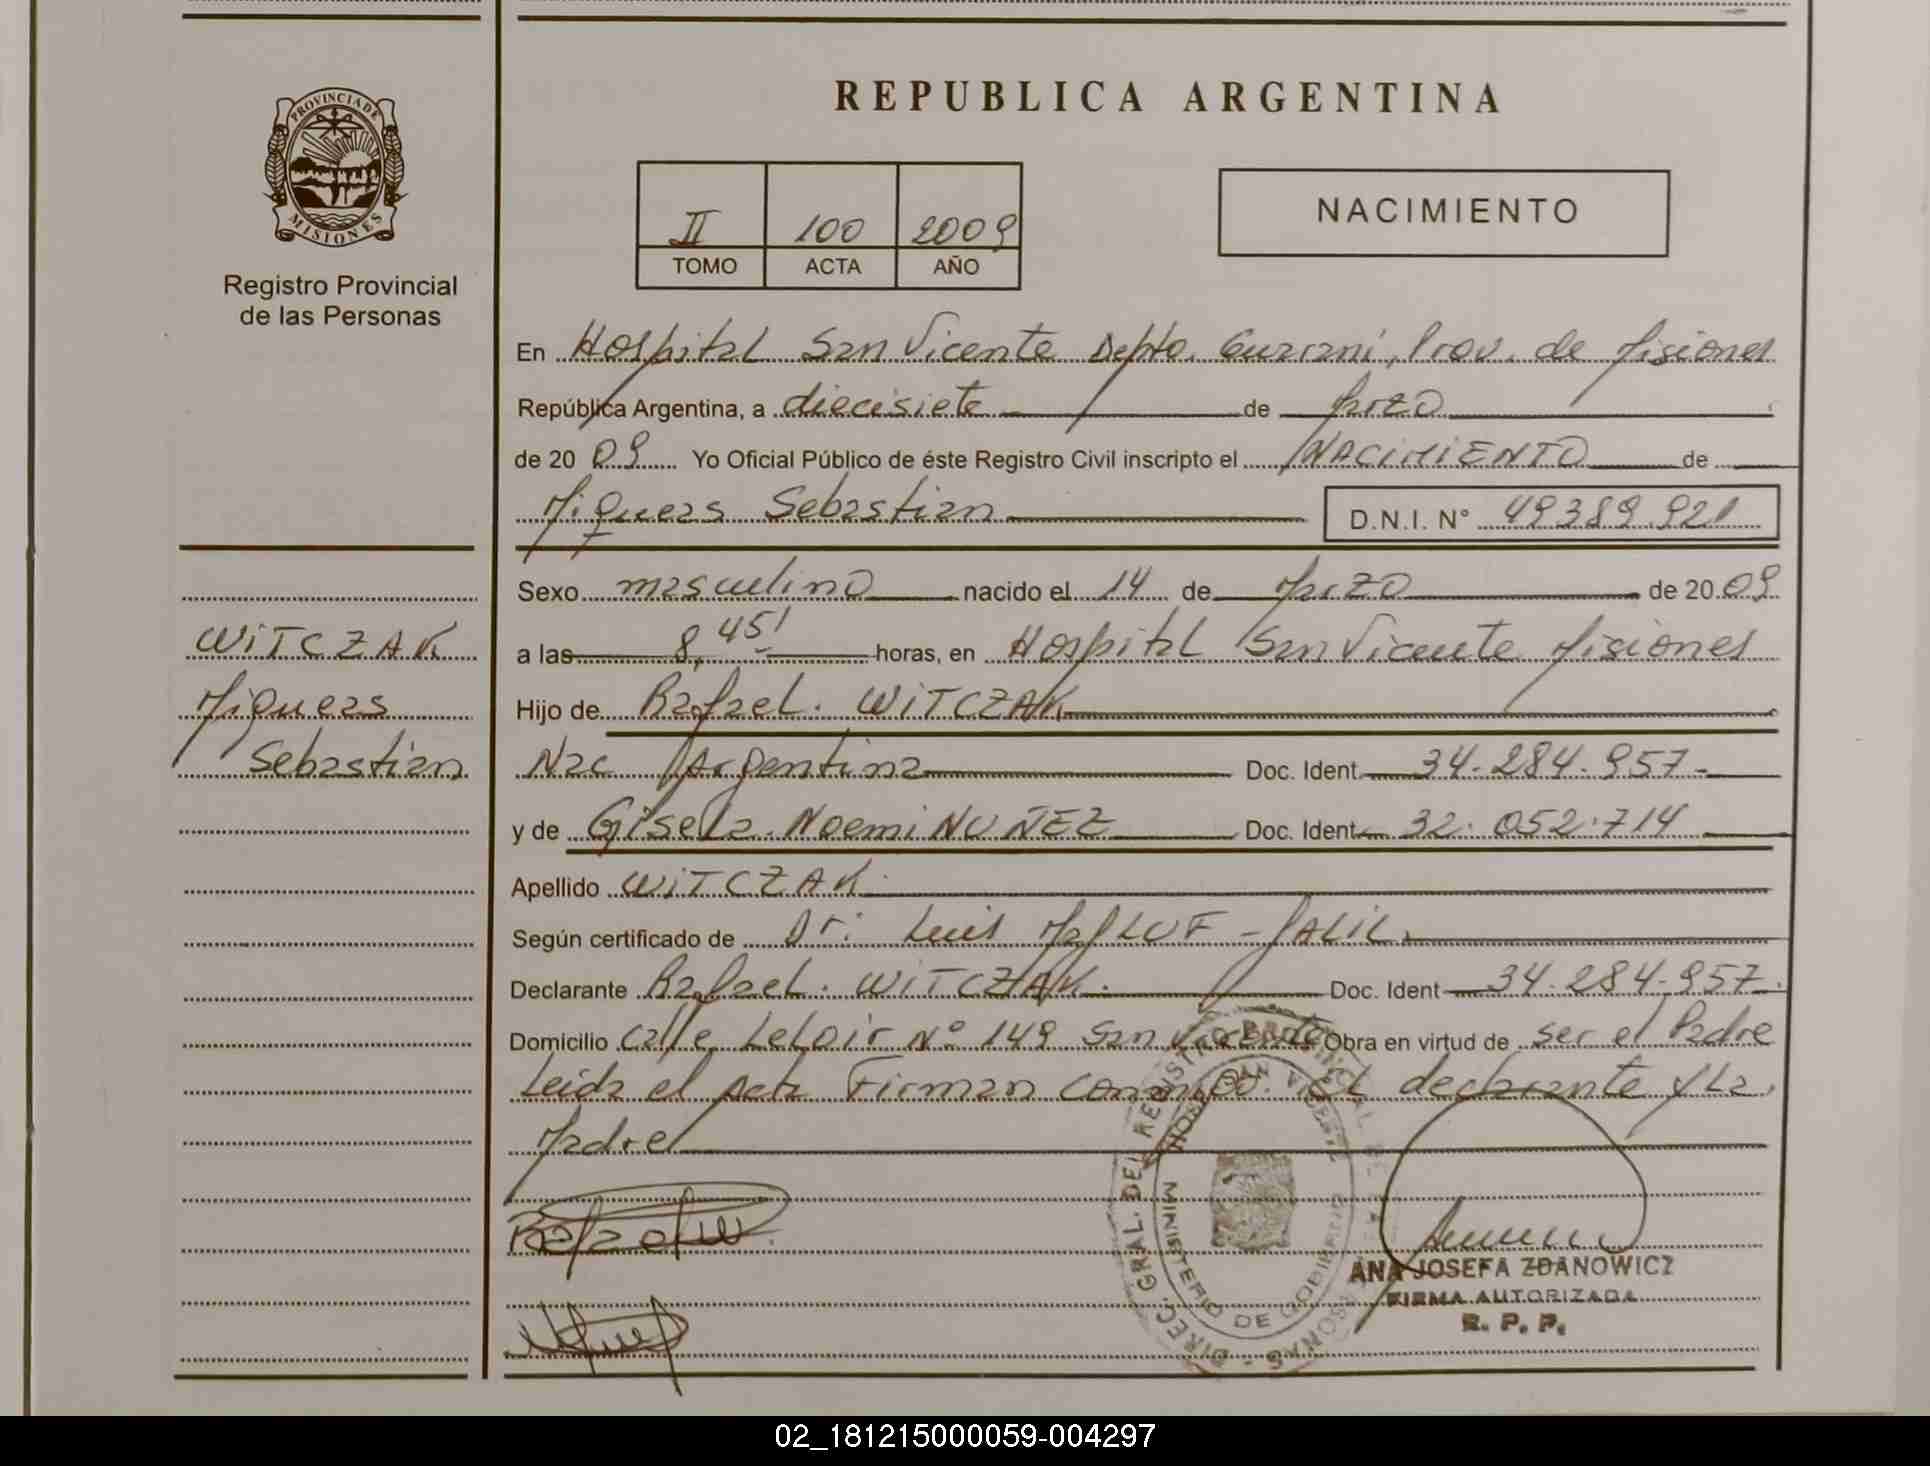 PROVINCIA DE
MISIONES
Registro Provincial
de las Personas
WITCZAK
Miqueas
Sebastian
REPUBLICA ARGENTINA
II 100 2009
TOMO ACTA AÑO
NACIMIENTO
En Hospital San Vicente Depto. Guarani, Prov. de Misiones
República Argentina, a diecisiete de Marzo
de 20 09 Yo Oficial Público de éste Registro Civil inscripto el NACIMIENTO de
Miqueas Sebastian D.N.I. N° 49389921
Sexo masculino nacido el 14 de Marzo de 20 09
a las 8,45' horas, en Hospital San Vicente Misiones
Hijo de Rafael. WITCZAK
Nac Argentina Doc. Ident. 34.284.957-
y de Gisela Noemi NUÑEZ Doc. Ident. 32.052.714
Apellido WITCZAK
Según certificado de Dr. Luis MALLUF - JALIL.
Declarante Rafael. WITCZAK. Doc. Ident 34.284.957
Domicilio Calle LeLoir N° 149 San Vicente Obra en virtud de ser el Padre
Leida el Acta Firman conmigo. el declarante y La
Madre
DIREC. GRAL. DEL REGISTRO PROVINCIAL DE LAS PERSONAS -
HOSP. SAN VICENTE
MINISTERIO DE GOBIERNO
ANA JOSEFA ZDANOWICZ
FIRMA AUTORIZADA
R. P. P.
02_181215000059-004297